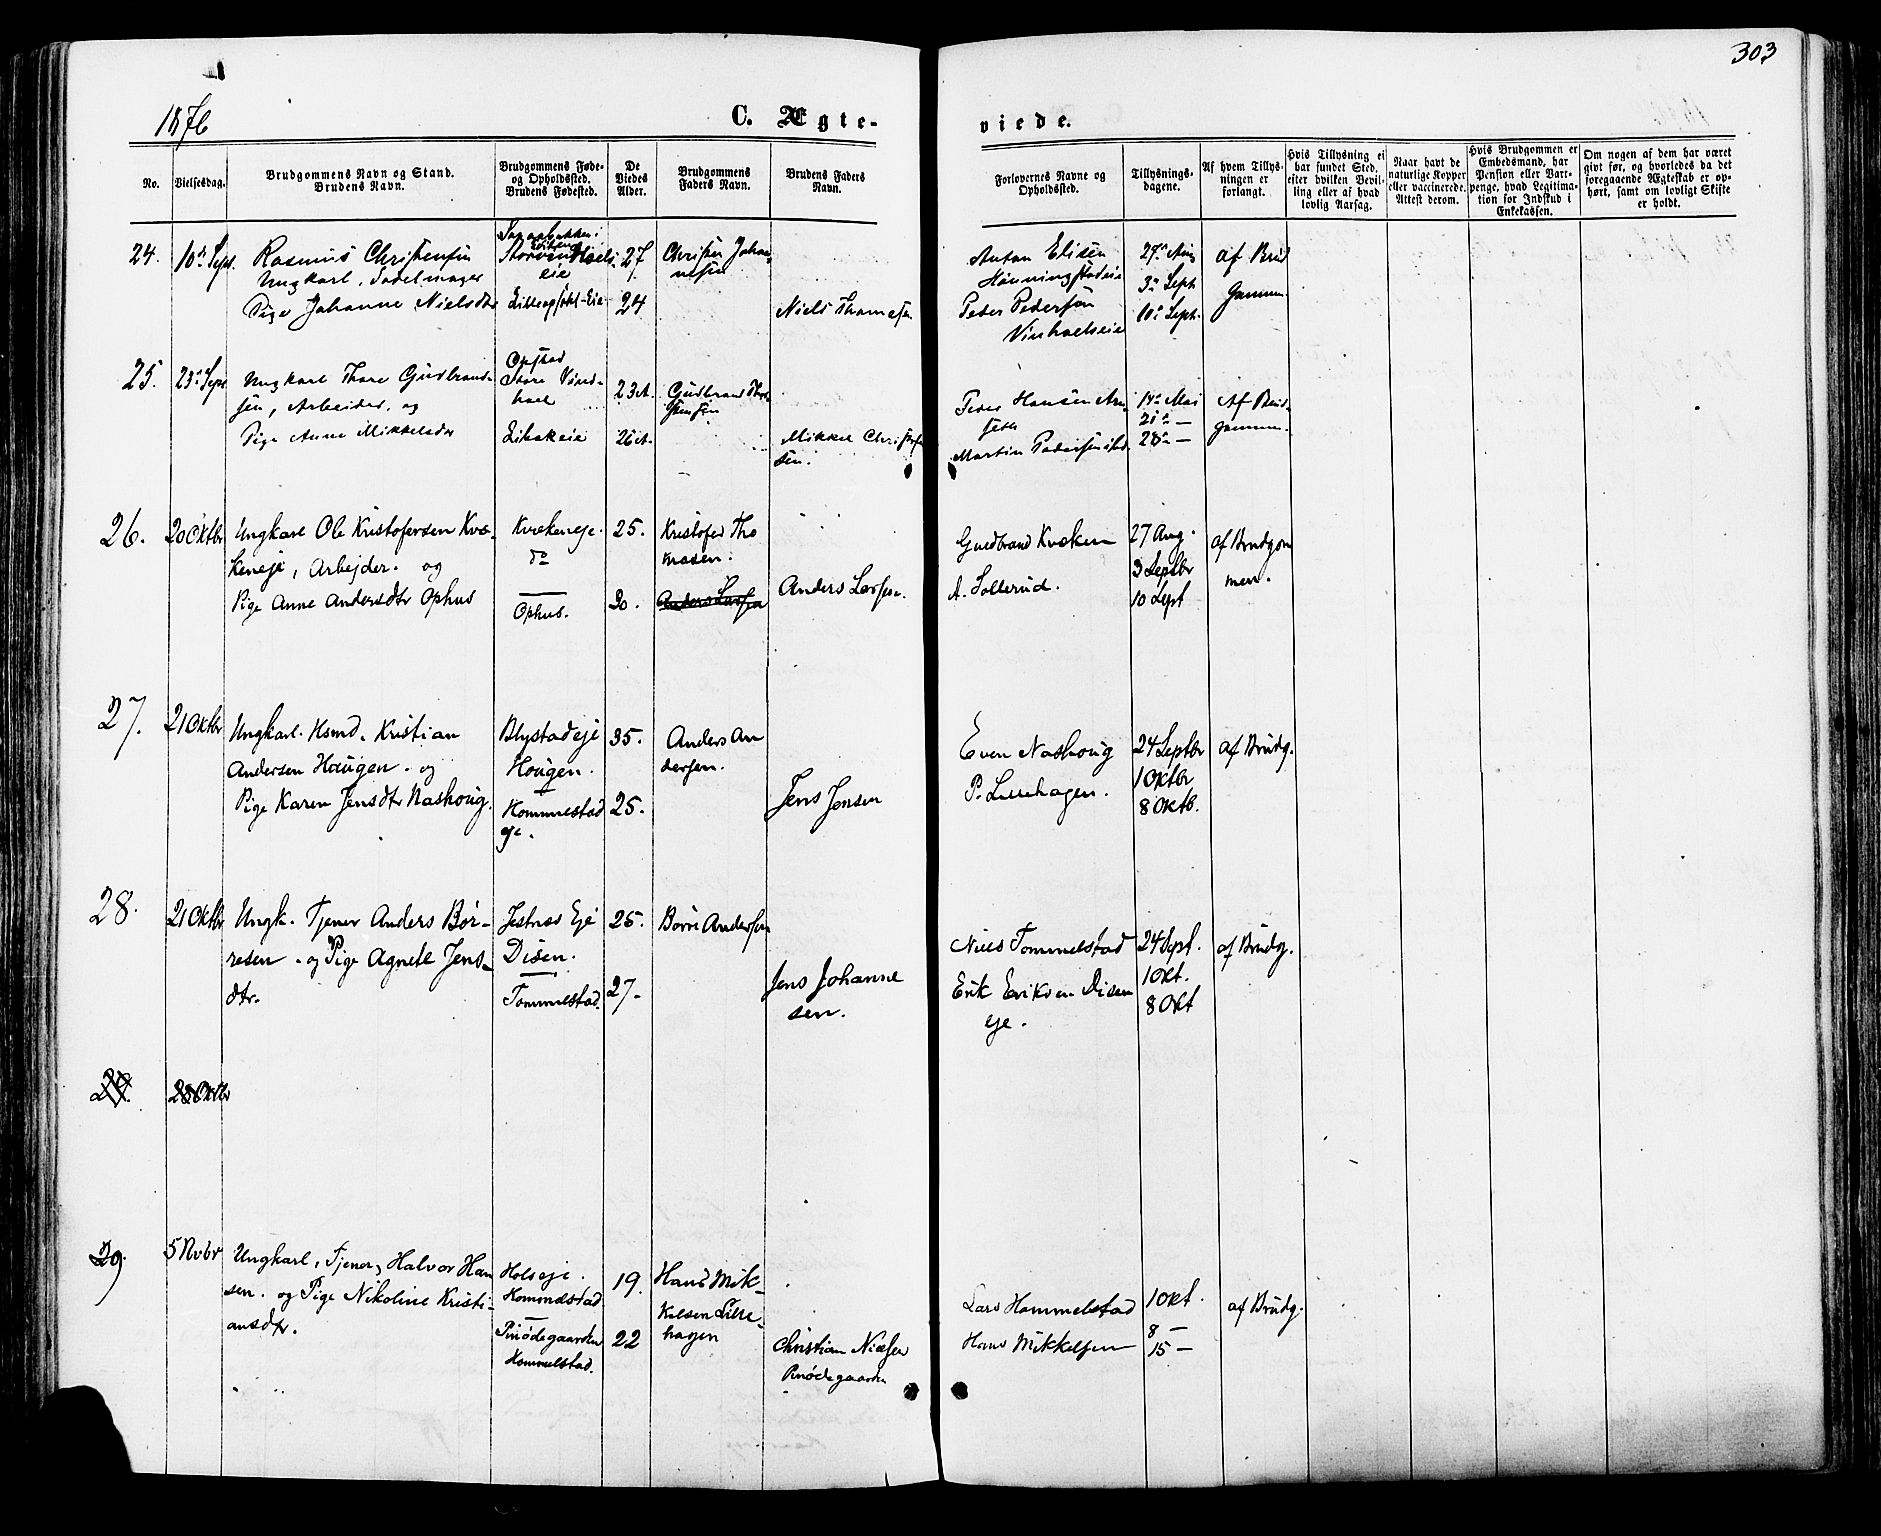 303
1876
C. Ægte-
viede.
No.
Vielsesdag.
Brudgommens Navn og Stand.
Brudens Navn.
Brudgommens Føde-
og Opholdssted.
Brudens Fødested.
De
Viedes
Alder.
Brudgommens
Faders Navn.
Brudens Faders
Navn.
Forlovernes Navne og
Opholdssted.
Tillysnings-
dagene.
Af hvem Tillys-
ningen er
forlangt.
Hvis Tillysning ei
har fundet Sted,
efter hvilken Bevil-
ling eller af hvad
lovlig Aarsag.
Naar havt de
naturlige Kopper
eller vaccinerede.
Attest derom.
Hvis Brudgommen er
Embedsmand, har
Pension eller Vart-
penge, hvad Legitima-
tion for Indskud i
Enkekassen.
Om nogen af dem har været
givt før, og hvorledes da det
foregaaende Ægteskab er op-
hørt, samt om lovligt Skifte
er holdt.
24.
10de Sept.
Rasmus Christensen
Ungkarl, Sadelmager
Pige Johanne Nielsdtr
eie
27
24
Christen Johan-
nesen
Niels Thomesen
Anton Elisen
Hønningstadeie
Peder Pedersen
27de Aug
3de Sept
10de Sept.
af Brud
gommen
25.
23de Sept
Ungkarl Thore Gudbrand-
sen, Arbeider, og
Pige Anne Mikkelsdtr
Opstad
Store Vind-
hoel
23 A.
26 A.
Gudbrand Thor
stensen
Mikkel Christof
sen.
Peder Hansen Arn-
seth
Martin Pedersen
14de Mai
21de —
28de —
Af Brud-
gommen.
26.
20 Oktbr
Ungkarl Ole Kristofersen Kvæ-
keneje, Arbejder. og
Pige Anne Andersdtr Ophus
Kvækeneje.
do
Ophus.
25.
20.
Kristofer Tho
masen.
Anders Larsen
Anders Larsen.
Gudbrand Kvæken
A. Sollerud.
27 Aug.
3 Septbr
10 Sept
af Brudgom
men.
27.
21 Oktbr
Ungkarl. Hsmd. Kristian
Andersen Haugen. og
Pige Karen Jensdtr Nashoug.
Blystadeje
Hougen.
Hommelstad
eje.
35.
25.
Anders An
dersen.
Jens Jensen
Even Nashoug
P. Lillehagen.
24 Septbr
1 Oktbr
8 Oktb.
af Brudg.
28.
21 Oktbr
Ungk. Tjener Anders Bør-
resen. og Pige Agnete Jens-
dtr.
Jestnes Eje
Disen.
Tommelstad.
25.
27.
Børre Andersen
Jens Johanne
sen.
Niels Tommelstad
Erik Eriksen Disen
eje.
24 Sept.
1 Okt.
8 Okt
af Brudg.
29.
28 Oktbr
29.
5 Novbr
Ungkarl, Tjener, Halvor Han
sen. og Pige Nikoline Kristi-
ansdtr.
Holseje.
Hommelstad
Prødegaarden
Hommelstad.
19.
22
Hans Mik-
kelsen Lille-
hagen
Christian Nielsen
Prødegaarden
Lars Hommelstad
Hans Mikkelsen
1 Okt.
8 —
15 —
af Brudg.